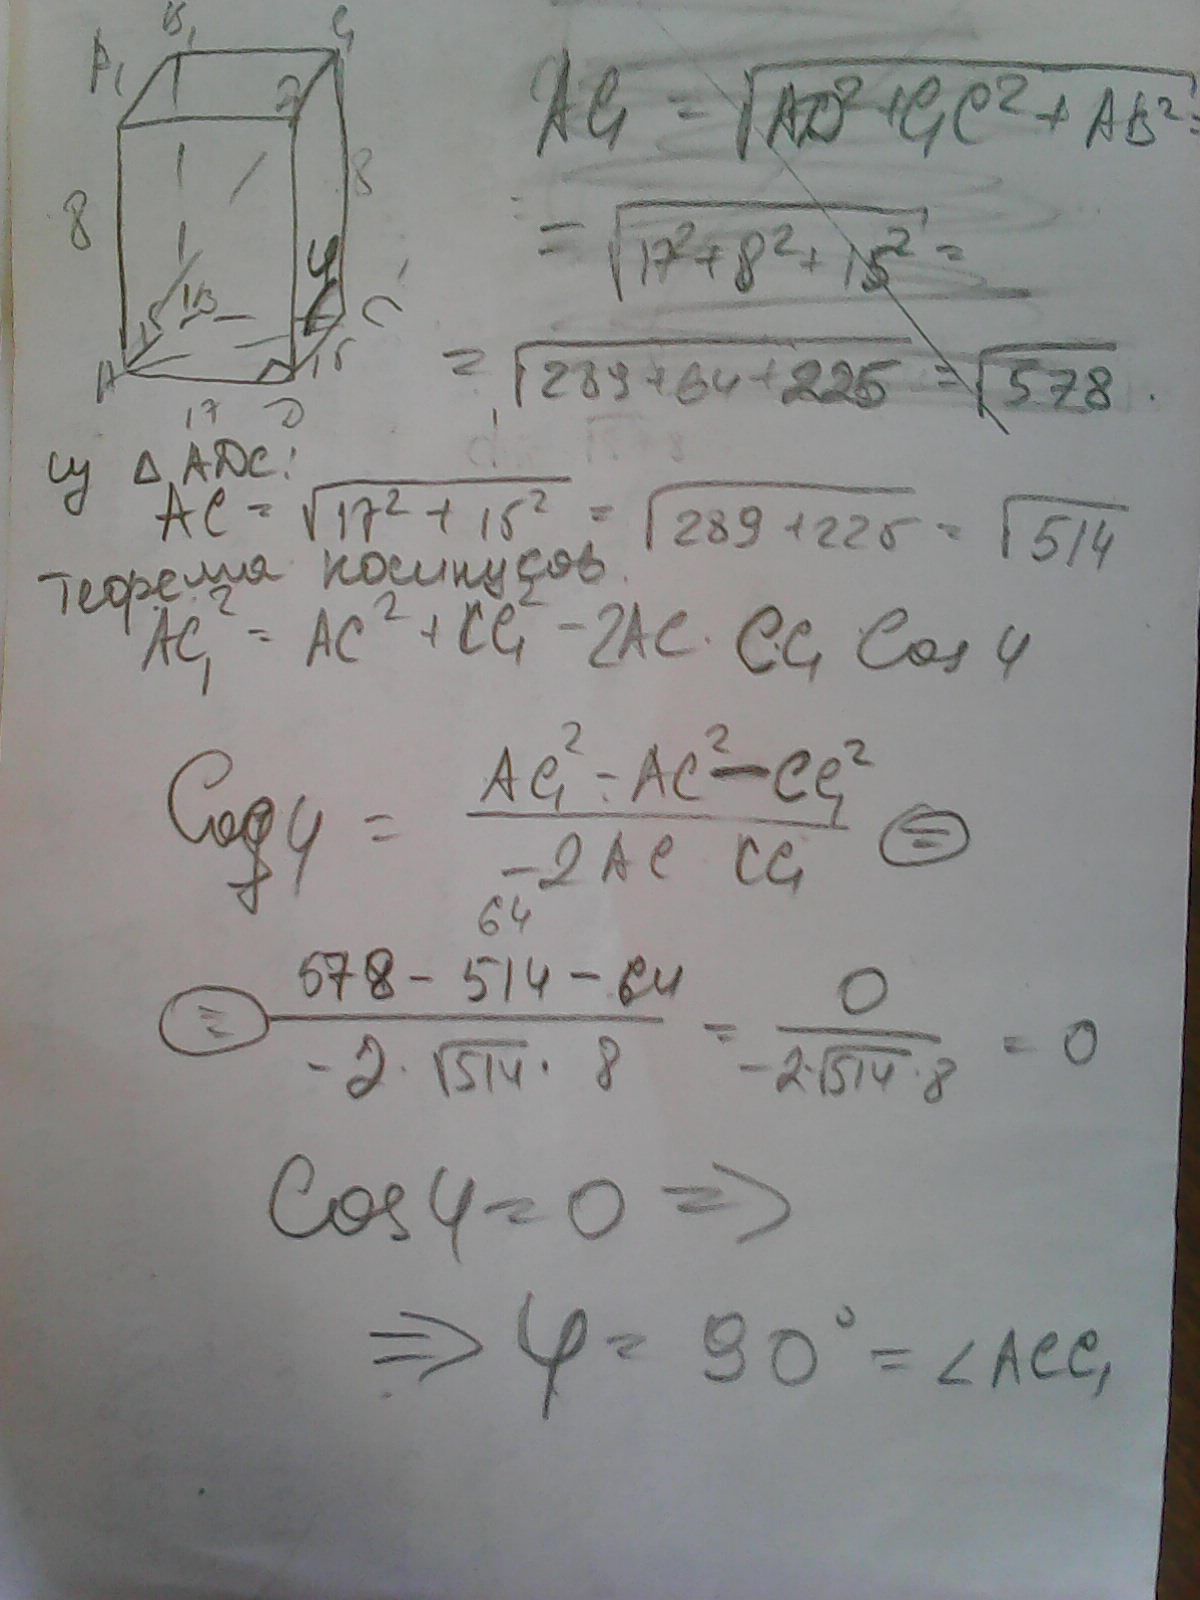 B₁ C₁
A₁ D
8 8
φ
15 B C
A 15
17 D
AC₁ = √(AD² + C₁C² + AB²) =
= √(17² + 8² + 15²) =
= √(289 + 64 + 225) = √578.
из Δ ADC:
AC = √(17² + 15²) = √(289 + 225) = √514
Теорема косинусов.
AC₁² = AC² + CC₁² - 2AC · CC₁ Cos φ
Cos φ = (AC₁² - AC² - CC₁²) / (-2AC CC₁) =
64
= (578 - 514 - 64) / (-2 · √514 · 8) = 0 / (-2·√514 · 8) = 0
Cos φ = 0 ⇒
⇒ φ = 90° = ∠ACC₁